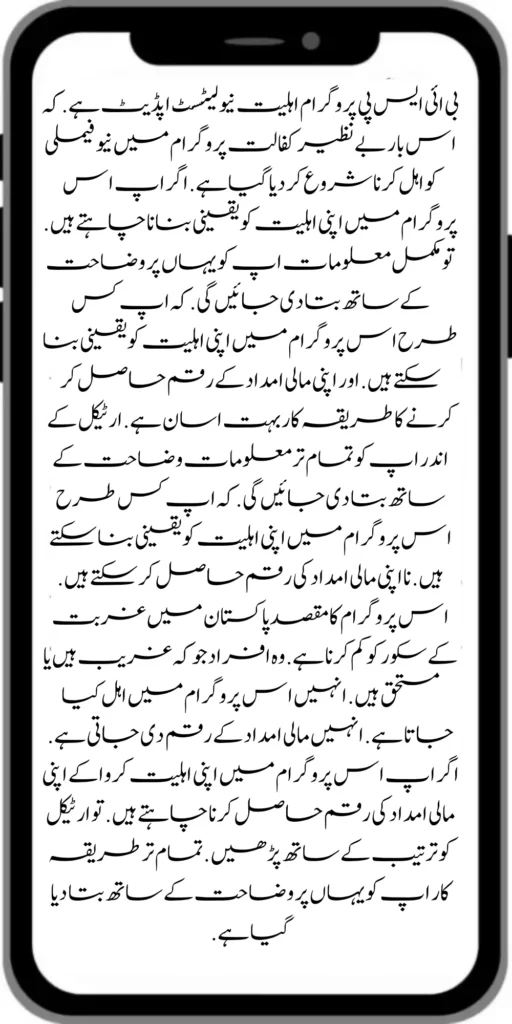 بی ائی ایس پی پروگرام اہلیت نیو لیٹسٹ اپڈیٹ ہے. کہ
اس بار بے نظیر کفالت پروگرام میں نیو فیملی
کو اہل کرنا شروع کر دیا گیا ہے. اگر اپ اس
پروگرام میں اپنی اہلیت کو یقینی بنانا چاہتے ہیں.
تو مکمل معلومات اپ کو یہاں پر وضاحت
کے ساتھ بتا دی جائیں گی. کہ اپ کس
طرح اس پروگرام میں اپنی اہلیت کو یقینی بنا
سکتے ہیں. اور اپنی مالی امداد کے رقم حاصل کر
کرنے کا طریقہ کار بہت اسان ہے. ارٹیکل کے
اندر اپ کو تمام تر معلومات وضاحت کے
ساتھ بتا دی جائیں گی. کہ اپ کس طرح
اس پروگرام میں اپنی اہلیت کو یقینی بنا سکتے
ہیں. نا اپنی مالی امداد کی رقم حاصل کر سکتے ہیں.
اس پروگرام کا مقصد پاکستان میں غربت
کے سکور کو کم کرنا ہے. وہ افراد جو کہ غریب ہیں یا
مستحق ہیں. انہیں اس پروگرام میں اہل کیا
جاتا ہے. انہیں مالی امداد کے رقم دی جاتی ہے.
اگر اپ اس پروگرام میں اپنی اہلیت کروا کے اپنی
مالی امداد کی رقم حاصل کرنا چاہتے ہیں. تو ارٹیکل
کو ترتیب کے ساتھ پڑھیں. تمام تر طریقہ
کار اپ کو یہاں پر وضاحت کے ساتھ بتا دیا
گیا ہے.